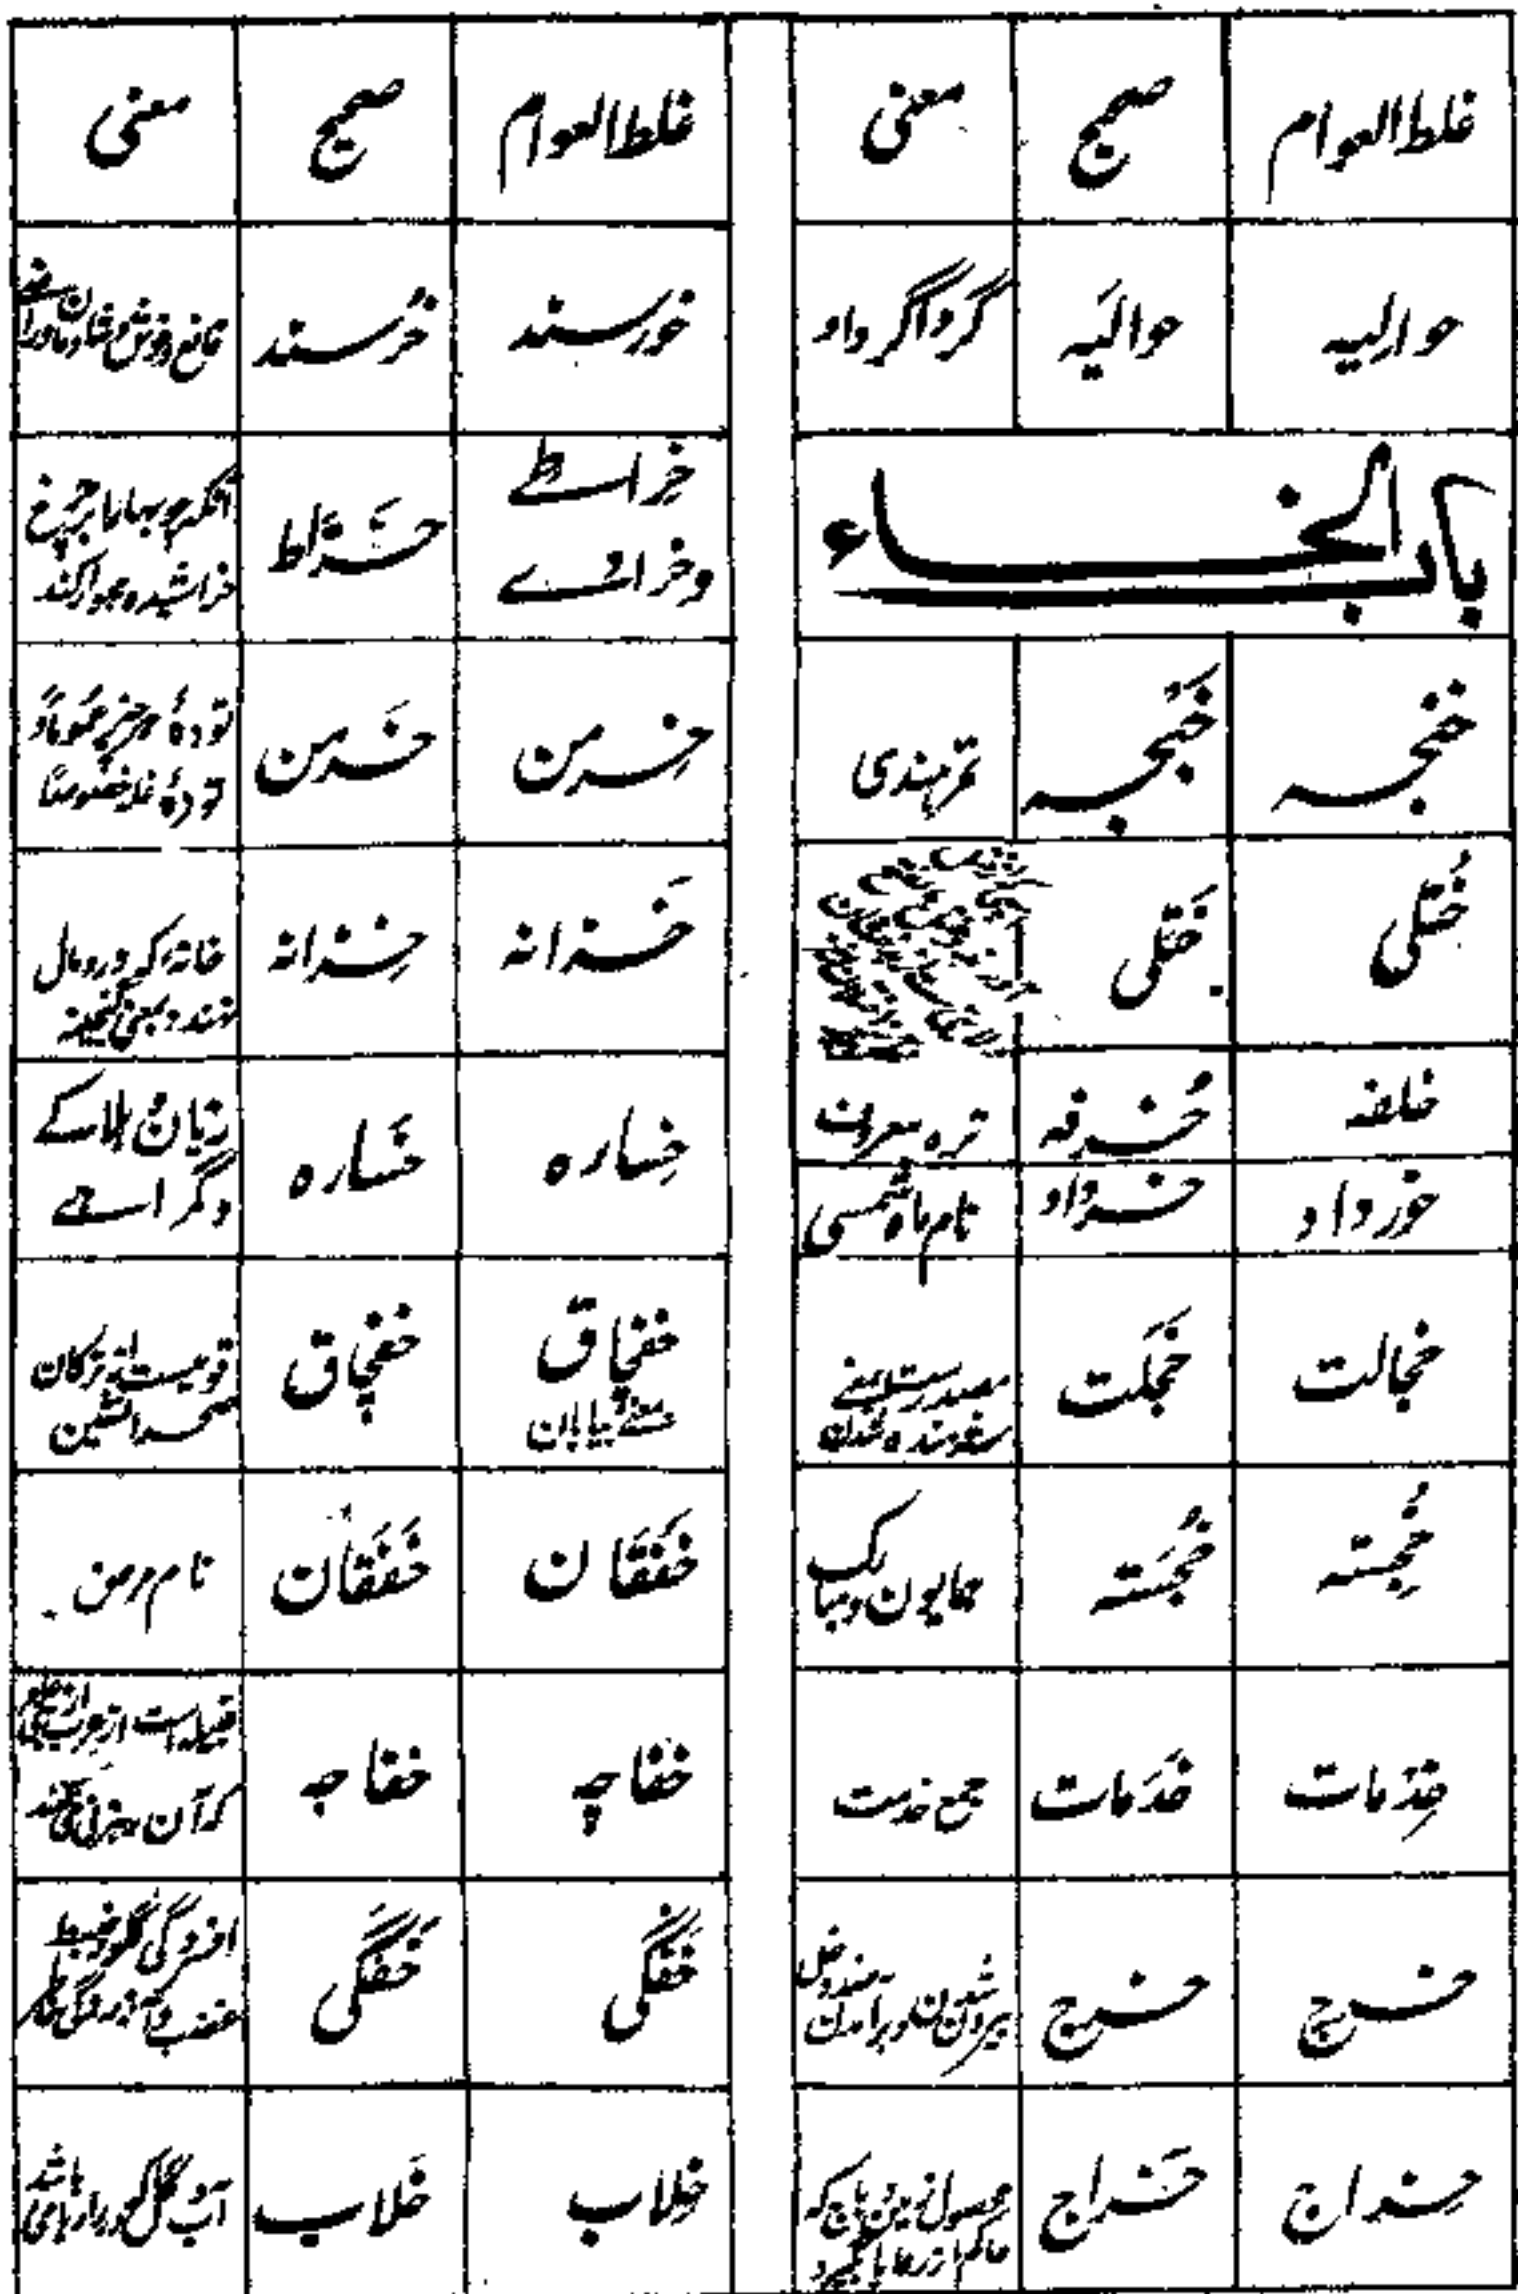 غلط العوام صحیح معنی
حوالیہ حوالَیہ گرداگرد او
باب الخاء
خنجہ خَنجہ تمر ہندی
خُتلی خَتلی
خلفہ خُرفہ ترہ معروف
خورداد خرداد نام ماہ شمسی
خجالت خَجلَت مصدر ست بمعنے
شرمندہ شدن
خُجِستہ خُجَستہ ہمایون و مبارک
خِدمات خَدَمات جمع خدمت
خرچ خرج بیرون شدن و برآمدن
خِراج خَراج محصول زمین و باج کہ
حاکم از رعایا گیرد
غلط العوام صحیح معنی
خورسند خُرسند قانع و خوش و شادمان و راضے
خِراطے
و خرادے
خَرّاط آنکہ چوبہا را بر چرخ
خراشیدہ ہموار کند
خِرمن خَرمن تودۂ ہر چیز عموماً و
تودۂ غلہ خصوصاً
خَزانہ خِزانہ خانہ کہ درو مال
نہند و بمعنی گنجینہ
خِسارہ خَسارہ زیان و ہلاکے
و گمراہے
خفچاق
بمعنے بیابان
خفچاق قومیست از ترکان
صحرانشین
خَفَقان خَفَقَان نام مرض
خفاچہ خفاجہ قبیلہ است از عرب
کہ آن رہزنی کنند
خَفگی خَفَگی
خِلاب خَلاب آب و گل